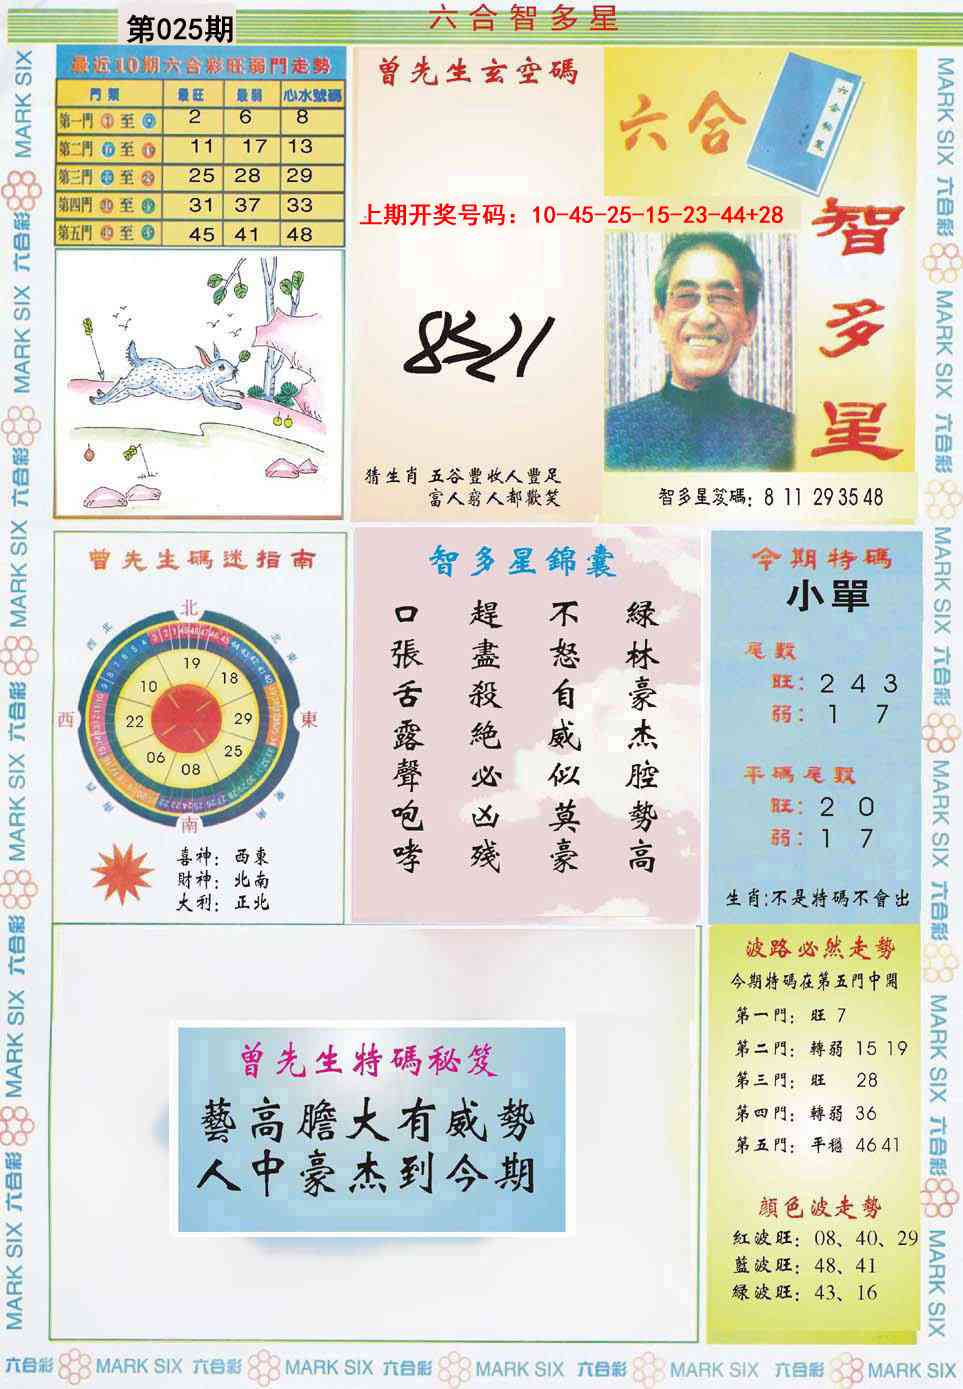 第025期
六合智多星
最近10期六合彩旺弱門走勢
門類 最旺 最弱 心水號碼
第一門 至 2 6 8
第二門 至 11 17 13
第三門 至 25 28 29
第四門 至 31 37 33
第五門 至 45 41 48
曾先生玄空碼
上期开奖号码：10-45-25-15-23-44+28
猜生肖 五谷豐收人豐足
富人窮人都歡笑
六合
智多星
智多星笈碼：8 11 29 35 48
曾先生碼迷指南
北
西北
東北
西
東
西南
東南
南
19
18
29
25
08
06
22
10
喜神：西東
財神：北南
大利：正北
智多星錦囊
綠林豪杰腔勢高
不怒自威似莫豪
趕盡殺絕必凶殘
口張舌露聲咆哮
今期特碼
小單
尾數
旺：2 4 3
弱：1 7
平碼尾數
旺：2 0
弱：1 7
生肖:不是特碼不會出
曾先生特碼秘笈
藝高膽大有威勢
人中豪杰到今期
波路必然走勢
今期特碼在第五門中開
第一門：旺 7
第二門：轉弱 15 19
第三門：旺 28
第四門：轉弱 36
第五門：平穩 46 41
顏色波走勢
紅波旺：08、40、29
藍波旺：48、41
綠波旺：43、16
六合彩 MARK SIX 六合彩 MARK SIX 六合彩 MARK SIX 六合彩 MARK SIX 六合彩 MARK SIX